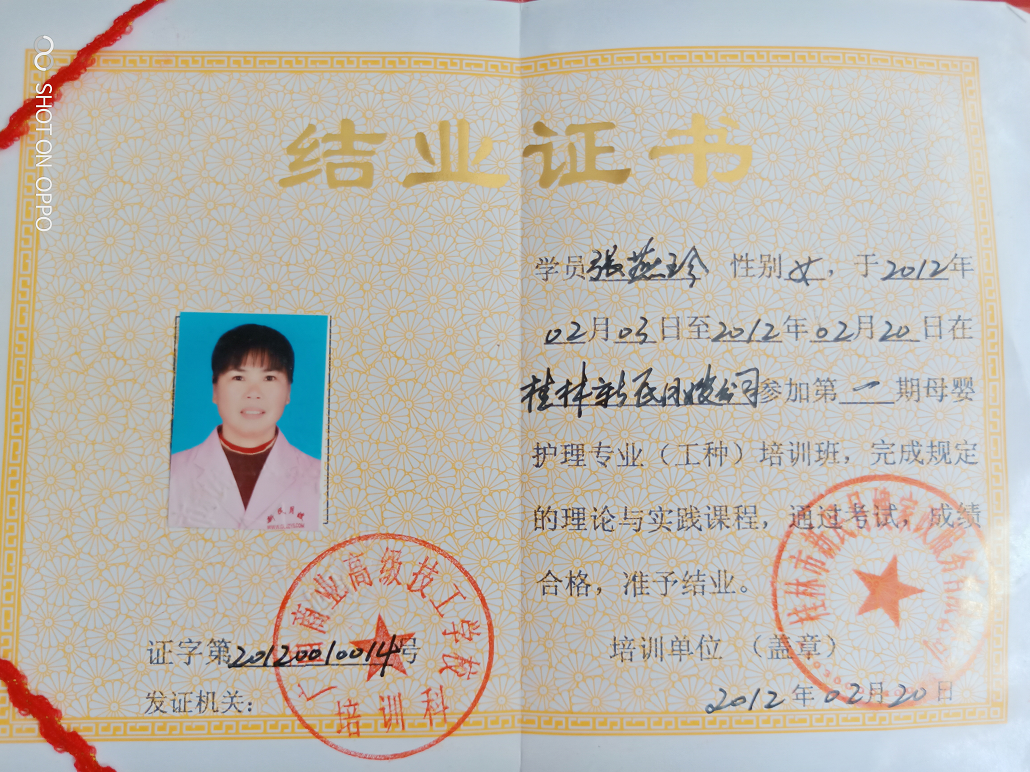 SHOT ON OPPO
结业证书
学员张燕玲 性别女，于2012年
02月03日至2012年02月20日在
桂林新民月嫂公司参加第一期母婴
护理专业（工种）培训班，完成规定
的理论与实践课程，通过考试，成绩
合格，准予结业。
培训单位 （盖章）
2012年02月20日
桂林市新民月嫂家政服务有限公司
证字第20120010014号
发证机关：
广西商业高级技工学校
培训科